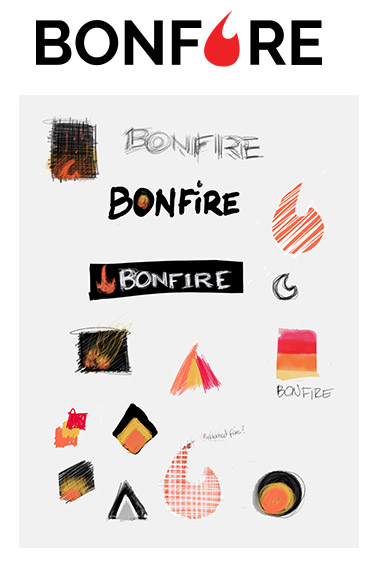 BONFIRE
BONFIRE
BONFiRE
BONFIRE
BONFIRE
fire?